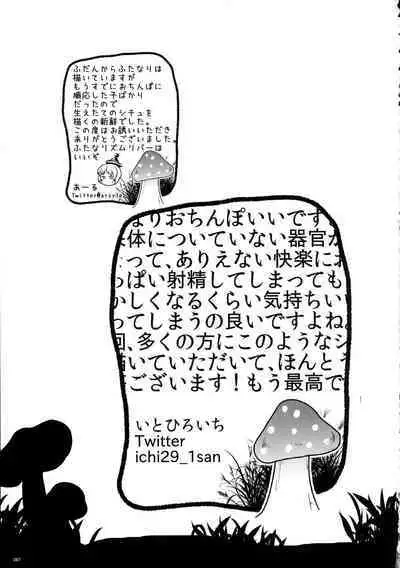 ふだんからふたなりは
描いていますが
もうすでにおちんぱに
順応した子ばかり
だったので
生えたてのシチュを
描くの新鮮でした。
この度はお誘いいただき
ありがとうございました
ふたなりズムリバーは
いいぞ
あーる
まりおちんぽいいです
体についていない器官が
って、ありえない快楽にお
っぱい射精してしまっても
かしくなるくらい気持ちいい
ってしまうの良いですよね。
回、多くの方にこのようなシ
描いていただいて、ほんとう
ございます！もう最高で
いとひろいち
Twitter
ichi29_1san